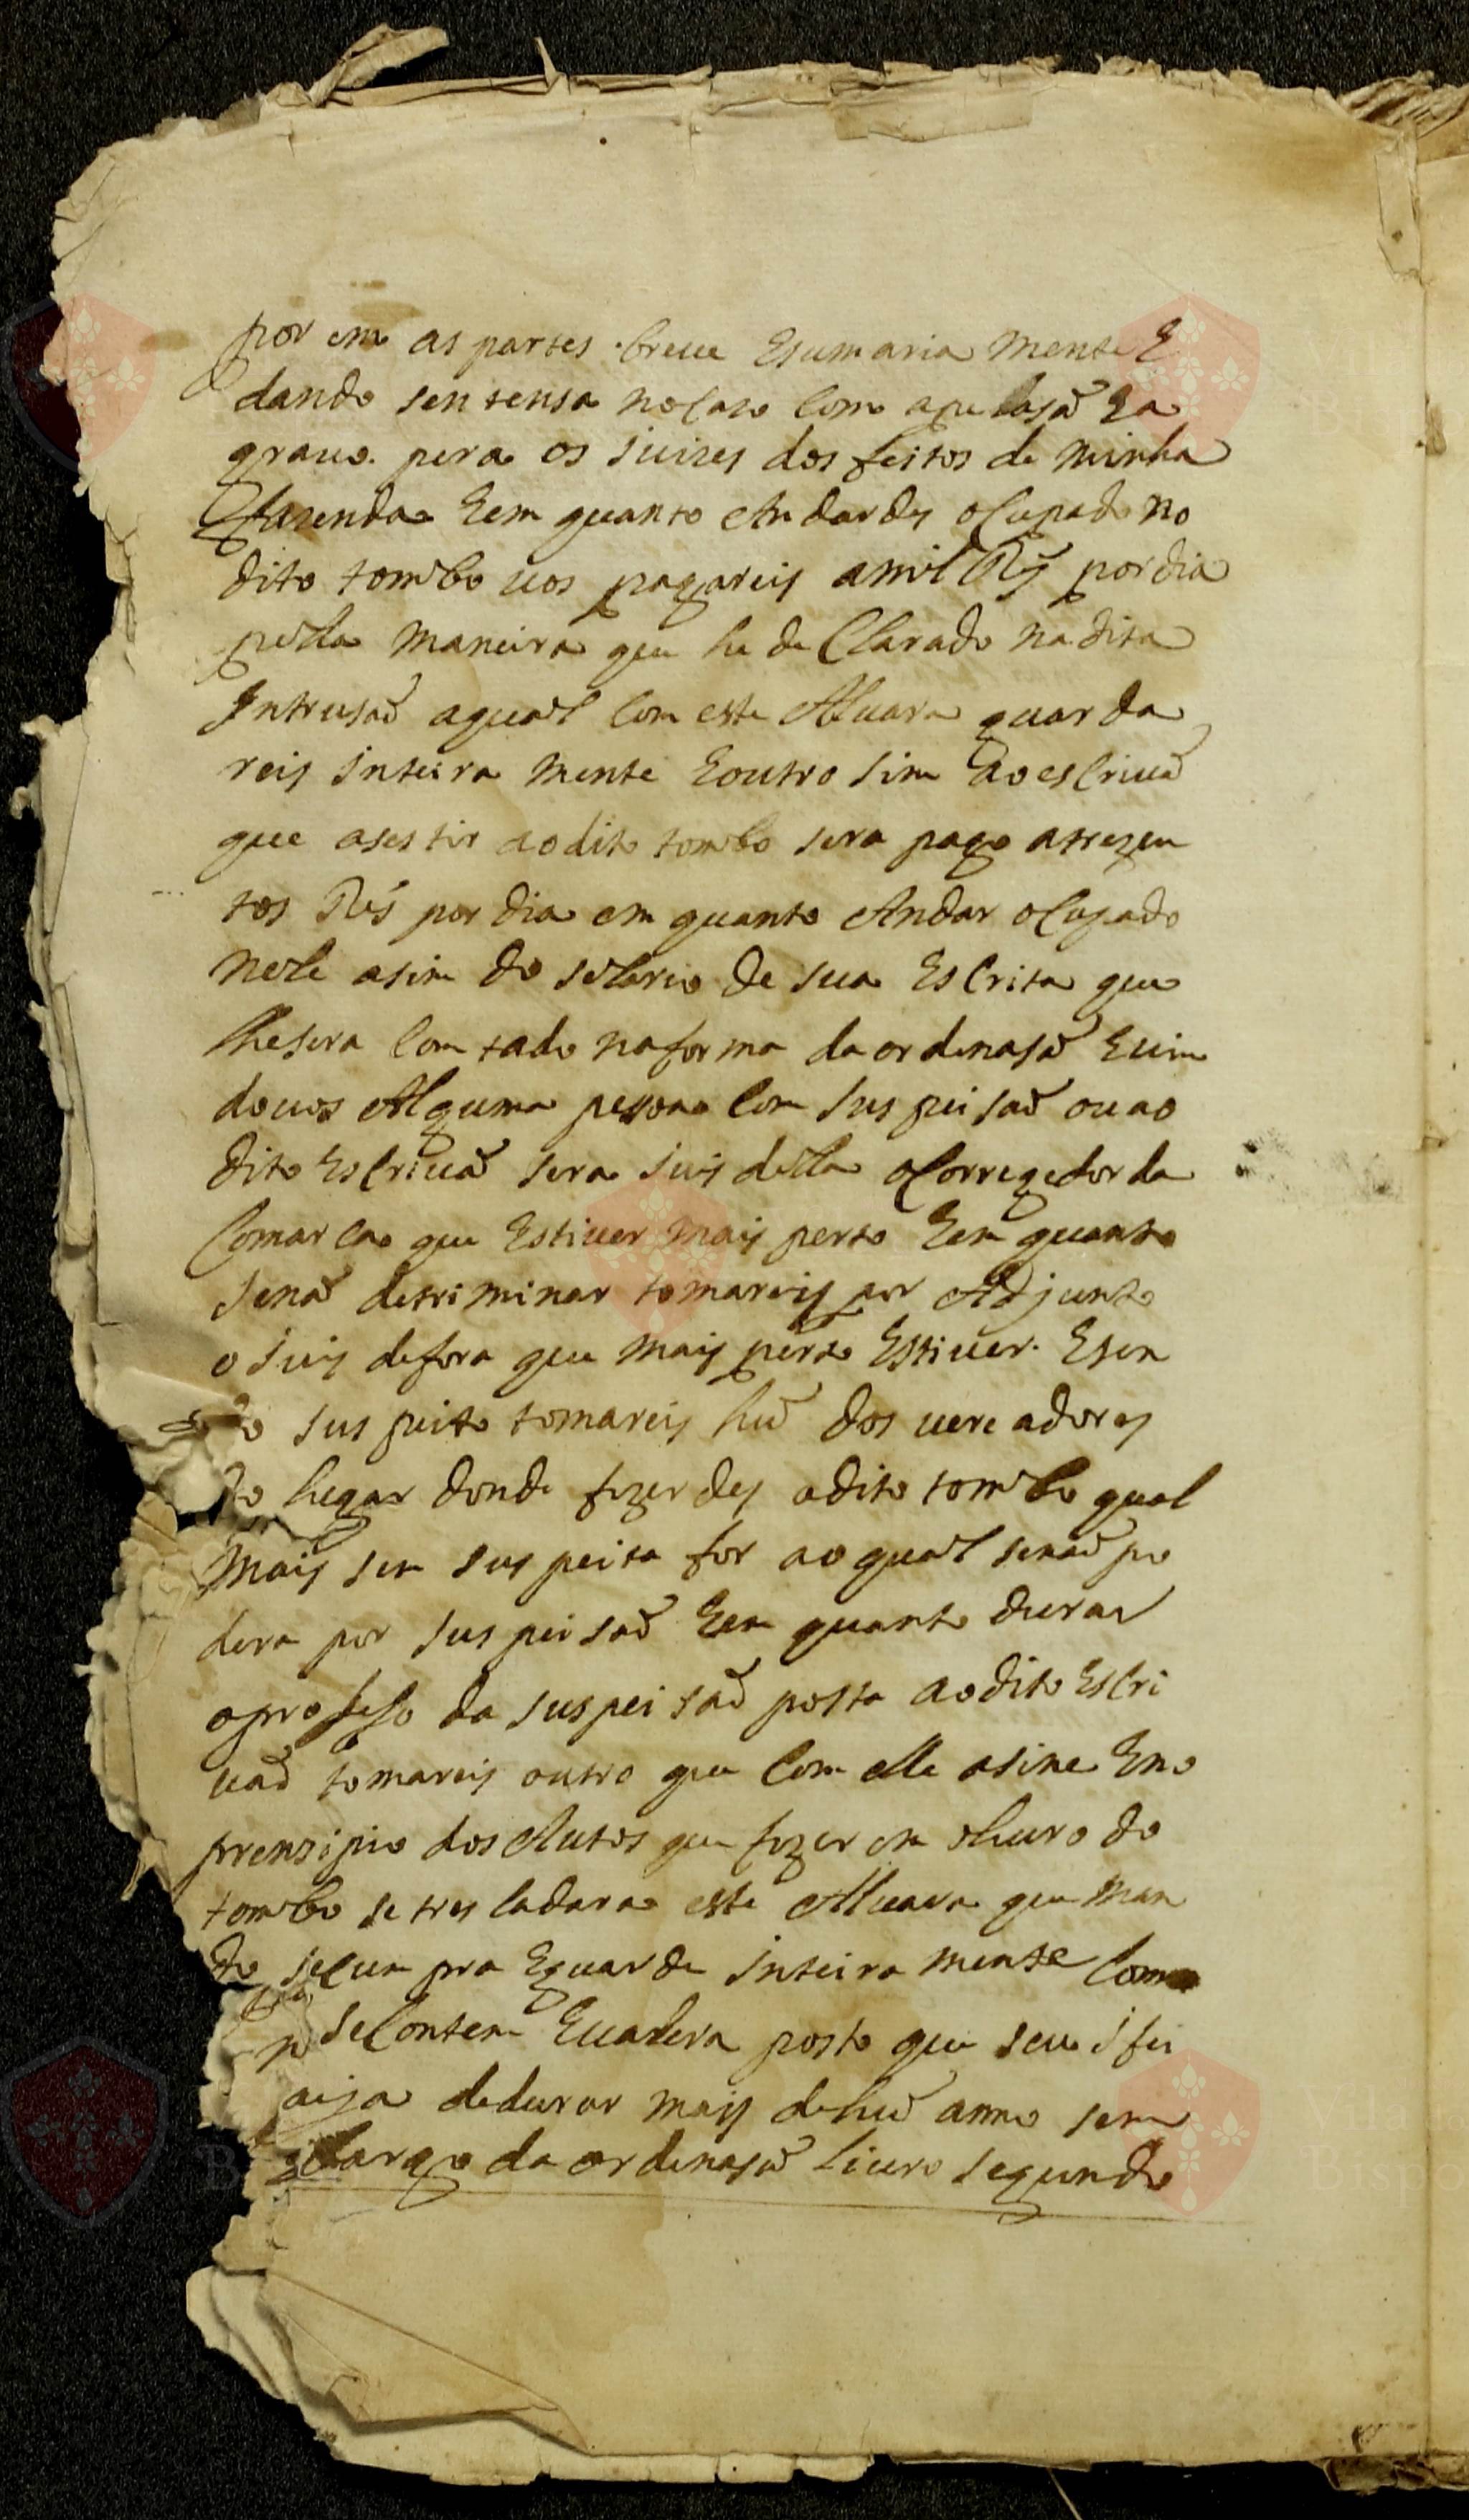 por em as partes breue Esumaria mente E
dando sentensa nocaso com apelasaõ Ea
grauo pera os juizes dos feitos de minha
fazenda Eem quanto Andardes ocupado no
dito tombo uos pagareis a mil Rs por dia
pella maneira que he de Clarado na dita
Intrusaõ aqual com este Aluara guarda
reis inteira mente Eoutro sim ao escriuaõ
que asestir ao dito tombo sera pago a trezen
tos Rs por dia em quanto Andar ocupado
nele asim do selario de sua Escrita que
lhesera com tado naforma da ordenasaõ Euin
douos Alguma pessoa com sus peisaõ ou ao
dito Escriuaõ sera juis della o Corregedor da
Comarca que Estiuer mais perto Eem quanto
senaõ detriminar tomareis por Adjunto
o juis defora que mais perto Estiuer. Esen
do sus peito tomareis hũ dos uere adores
do lugar donde fizerdes o dito tombo qual
mais sem sus peita for ao qual senaõ po
dera por sus peisaõ Eem quanto durar
oproseso da suspeisaõ posta ao dito Escri
uaõ tomareis outro que com elle asine Eno
prensipio dos Autos que fizer em oliuro do
tombo se tres ladara este Aluara que man
do secum pra Eguarde inteira mente Como
seContem Eualera posto que seu ifei
aija dedurar mais dehũ anno sem
Embargo da ordenasaõ liuro segundo